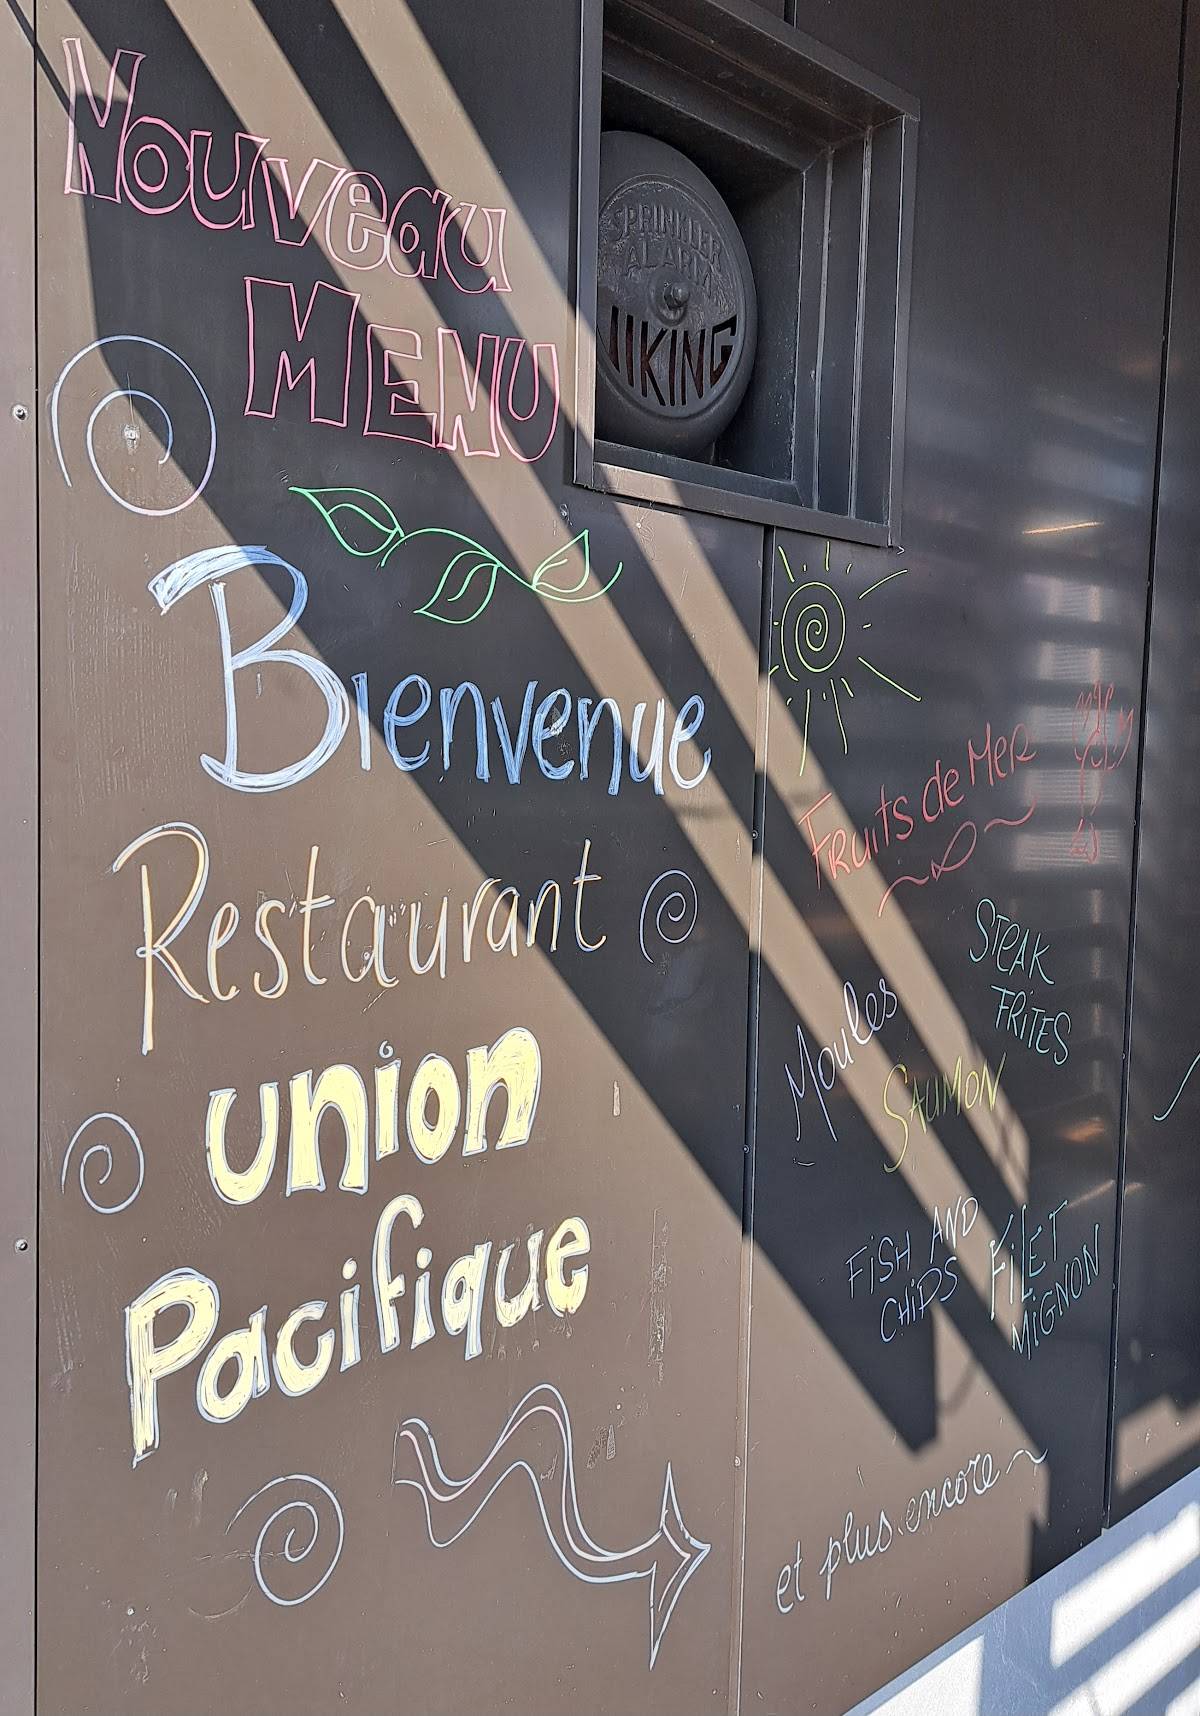 Nouveau
MENU
SPRINKLER
ALARM
VIKING
Bienvenue
Restaurant
union
Pacifique
Fruits de Mer
STEAK
FRITES
Moules
SAUMON
FISH AND
CHIPS
FiLET
MiGNON
et plus encore